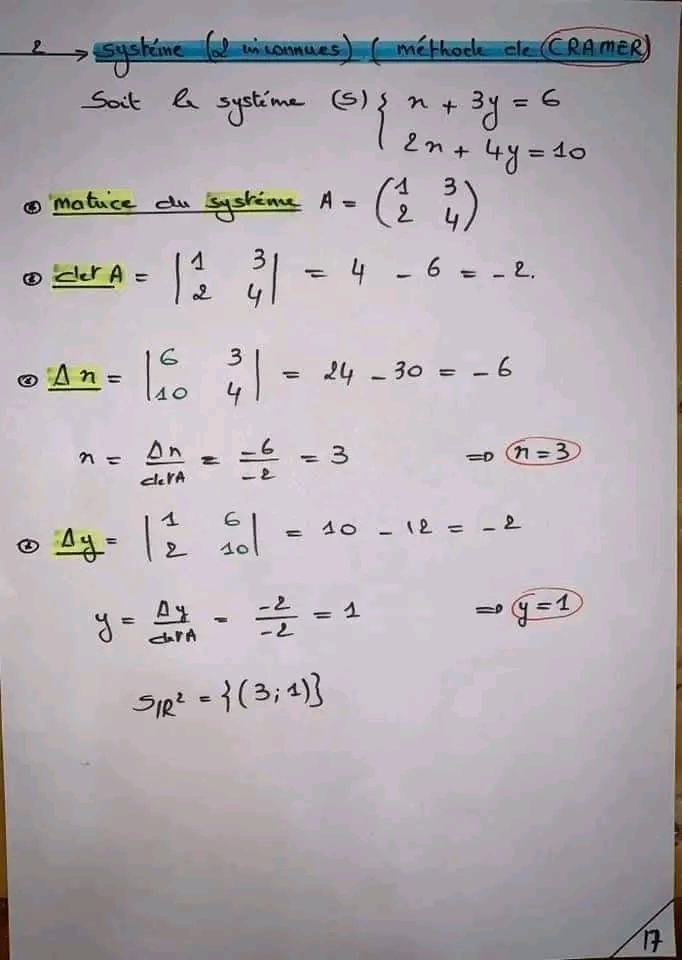 2 → systéme (2 inconnues) ( méthode de CRAMER)
Soit le systéme (S) { x + 3y = 6
2x + 4y = 10
② matrice du systéme A = (1 3
2 4)
② det A = |1 3
2 4| = 4 - 6 = - 2.
② Δx = |6 3
10 4| = 24 - 30 = - 6
x = Δx/detA = -6/-2 = 3 ⇒ x = 3
② Δy = |1 6
2 10| = 10 - 12 = - 2
y = Δy/detA = -2/-2 = 1 ⇒ y = 1
S_IR² = {(3 ; 1)}
17